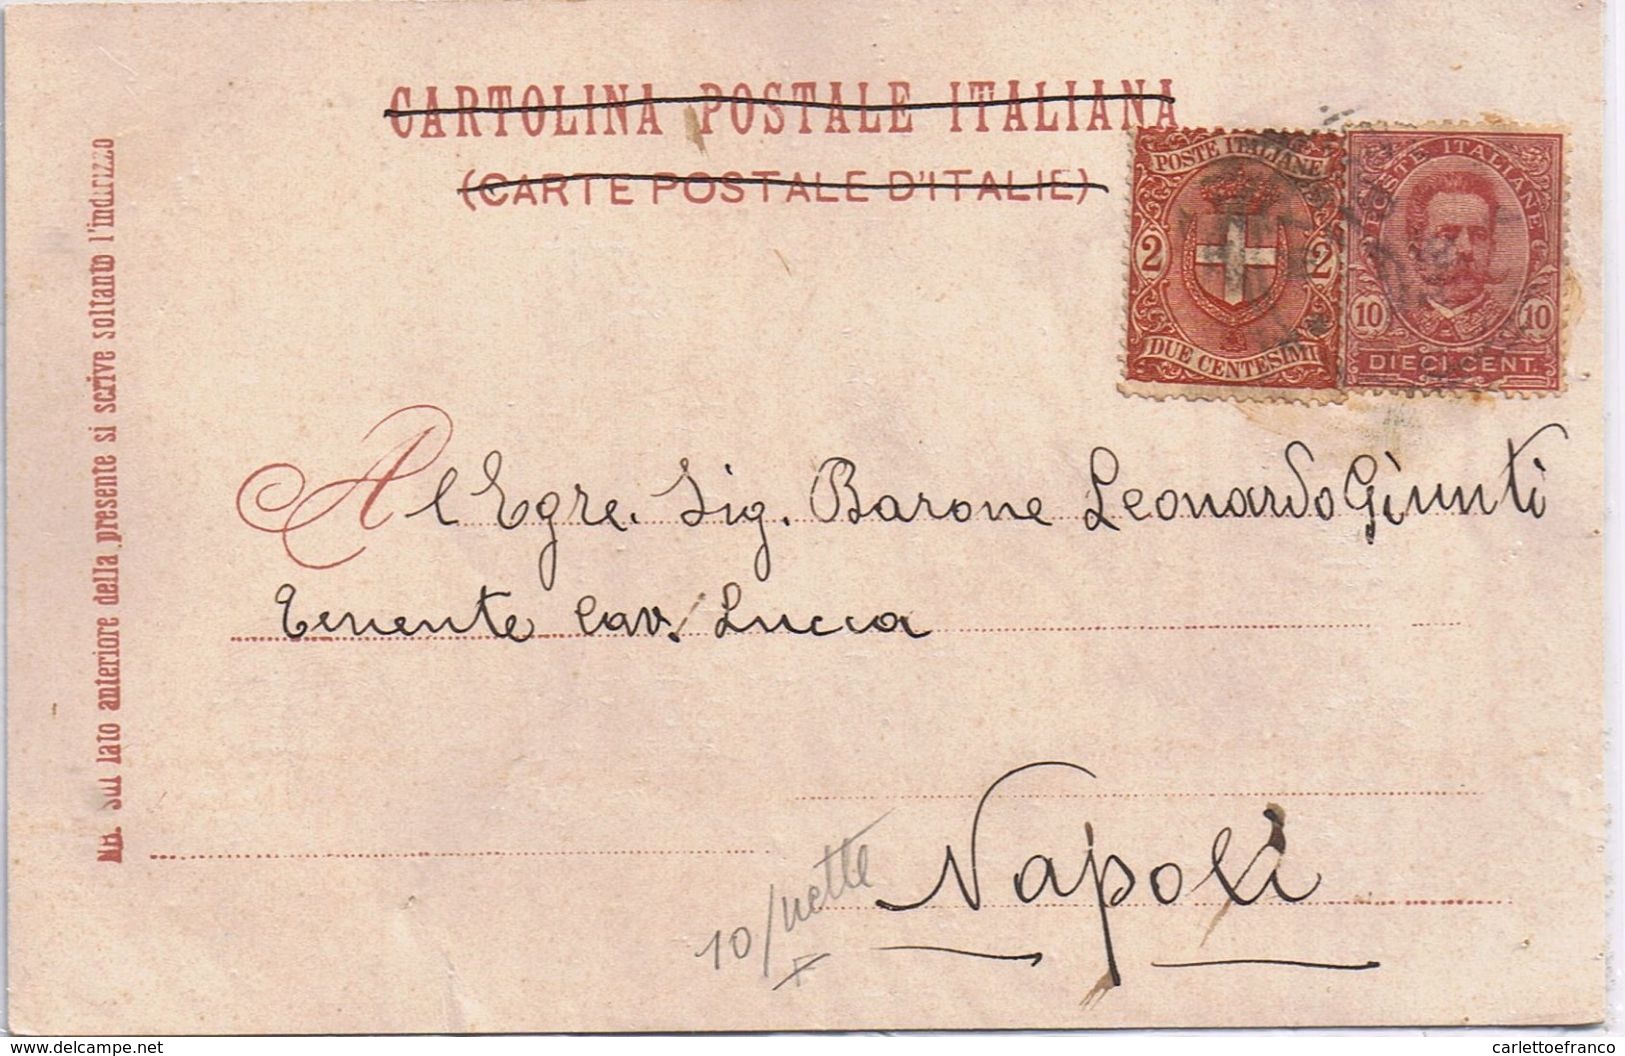 CARTOLINA POSTALE ITALIANA
(CARTE POSTALE D'ITALIE)
NB. Sul lato anteriore della presente si scrive soltanto l'indirizzo
POSTE ITALIANE
2 2
DUE CENTESIMI
POSTE ITALIANE
10 10
DIECI CENT.
Al Egre. Sig. Barone Leonardo Giunti
Tenente Cav. Lucca
Napoli
10/nette
delcampe.net
carlettoefranco